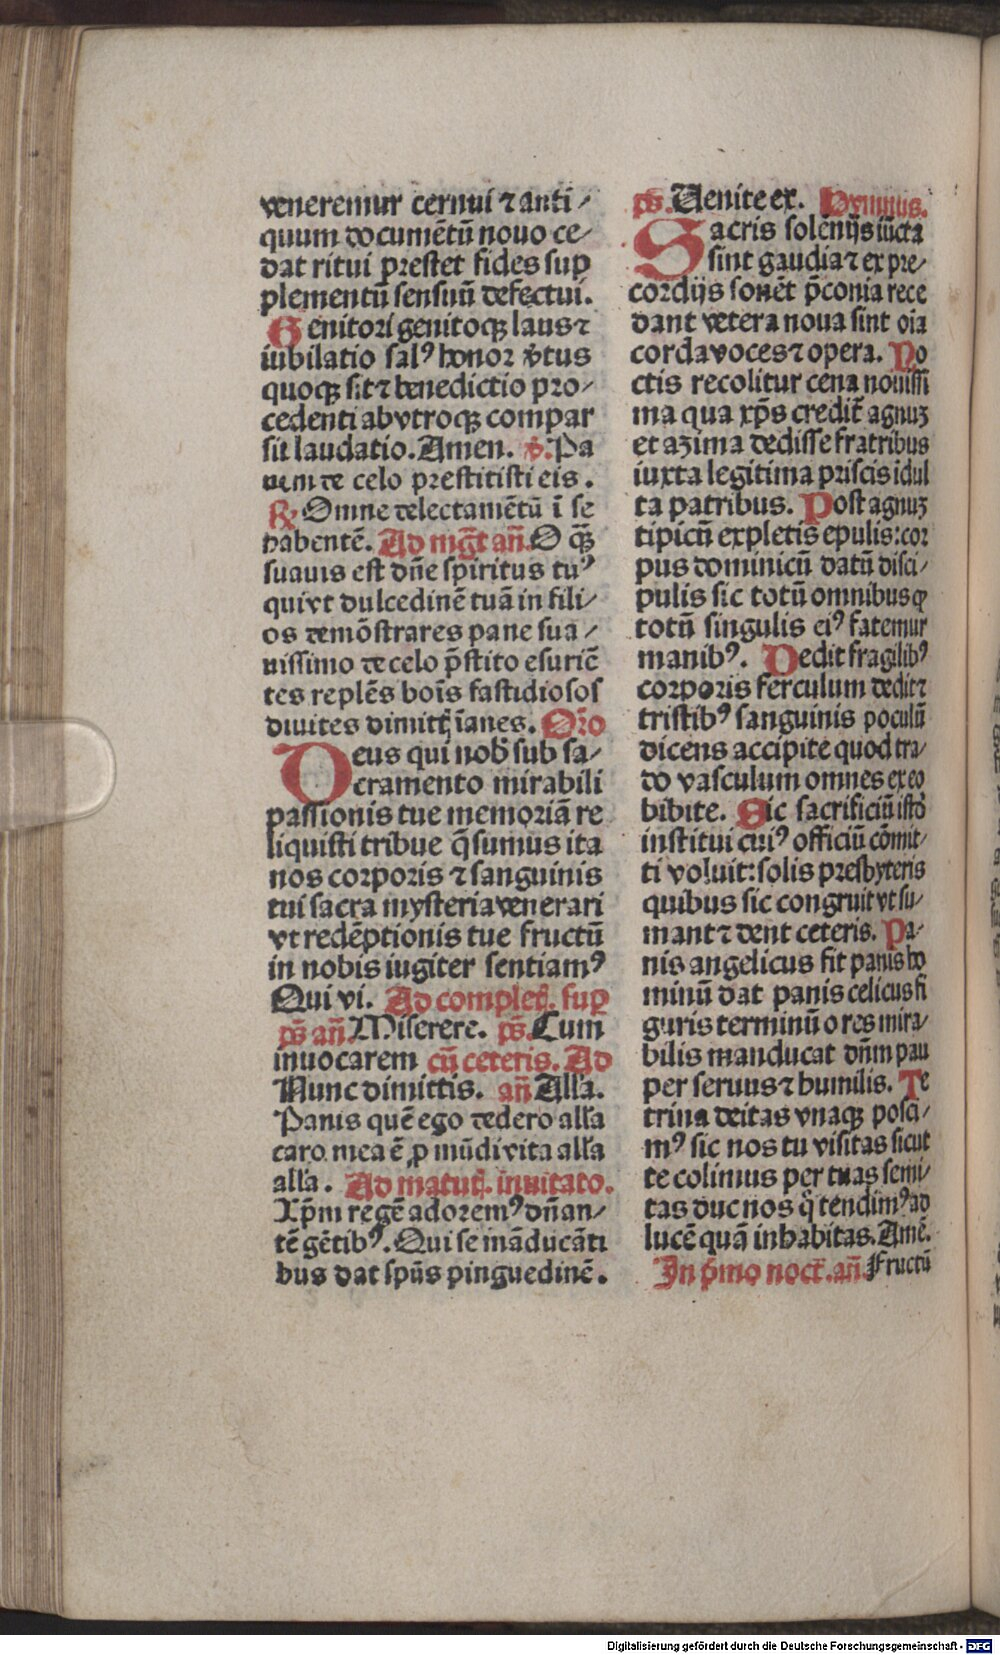 veneremur cernui ⁊ anti/
quum documētū nouo ce/
dat ritui prestet fides sup
plementū sensuū defectui.
Genitori genitoqꝫ laus ⁊
iubilatio salꝰ honor v̄tus
quoqꝫ sit ⁊ benedictio pro/
cedenti ab vtroqꝫ compar
sit laudatio. Amen. ℣. Pa
nem de celo prestitisti eis.
℞ Omne delectamētū ī se
habentē. Ad mḡt an̄. O qꝫ̄
suauis est dn̄e spiritus tuꝰ
qui vt dulcedinē tuā in fili/
os demōstrares pane sua/
uissimo de celo p̄stito esuriē
tes reples bois̄ fastidiosos
diuites dimittꝭ īanes. Or̄o
Deus qui nob̄ sub sa/
cramento mirabili
passionis tue memoriā re
liquisti tribue q̄sumus ita
nos corporis ⁊ sanguinis
tui sacra mysteria venerari
vt redēptionis tue fructū
in nobis iugiter sentiamꝰ
Qui vi. Ad completꝭ. suꝑ
ps̄ an̄. Miserere. ps̄. Cum
inuocarem cū ceteris. Ad
Nunc dimittis. an̄ Alla.
Panis quē ego dedero alla
caro mea ē ꝓ mūdi vita alla
alla. Ad matutꝭ. inuitato.
Xp̄m regē adoremꝰ dn̄an/
tē gētibꝰ. Qui se māducāti
bus dat sp̄us pinguedinē.
ps̄. Uenite ex. Hymnus.
Sacris solēnijs iūcta
sint gaudia ⁊ ex pre/
cordijs sonēt p̄conia rece
dant vetera noua sint oīa
corda voces ⁊ opera. No
ctis recolitur cena nouissi
ma qua xp̄s credit̄ agnuꝫ
et azima dedisse fratribus
iuxta legitima priscis idul
ta patribus. Post agnuꝫ
tipicū expletis epulis: cor
pus dominicū datū disci/
pulis sic totū omnibus ꝙ
totū singulis eiꝰ fatemur
manibꝰ. Dedit fragilibꝰ
corporis ferculum dedit ⁊
tristibꝰ sanguinis poculū
dicens accipite quod tra/
do vasculum omnes ex eo
bibite. Sic sacrificiū istō
instituit cuiꝰ officiū cōmit/
ti voluit: solis presbyteris
quibus sic congruit vt su/
mant ⁊ dent ceteris. Pa/
nis angelicus fit panis ho
minū dat panis celicus fi
guris terminū o res mira/
bilis manducat dn̄m pau
per seruus ⁊ humilis. Te
trina deitas vnaqꝫ posci/
mꝰ sic nos tu visitas sicut
te colimus per tuas semi/
tas duc nos q̊ tendimꝰ ad
lucē quā inhabitas. Amē.
In p̄mo noct̄. an̄. Fructū
Digitalisierung gefördert durch die Deutsche Forschungsgemeinschaft - DFG